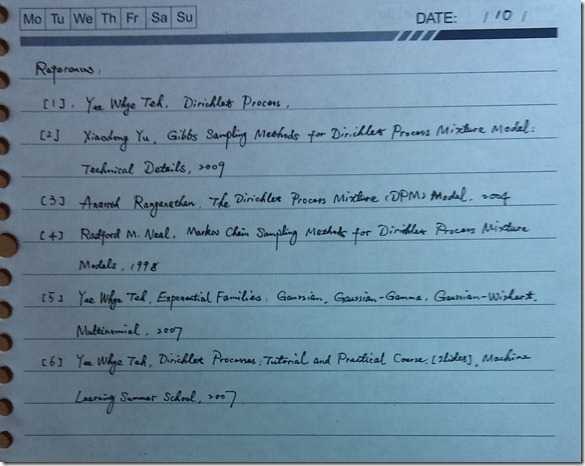 Mo Tu We Th Fr Sa Su
DATE: / 10 /
References,
[1]. Yee Whye Teh. Dirichlet Process.
[2] Xiaodong Yu, Gibbs Sampling Methods for Dirichlet Process Mixture Model:
Technical Details, 2009
[3] Ananth Ranganathan, The Dirichlet Process Mixture (DPM) Model, 2004
[4] Radford M. Neal. Markov Chain Sampling Methods for Dirichlet Process Mixture
Models, 1998
[5] Yee Whye Teh, Exponential Families: Gaussian, Gaussian-Gamma, Gaussian-Wishart,
Multinomial, 2007
[6] Yee Whye Teh, Dirichlet Processes: Tutorial and Practical Course. [slides], Machine
Learning Summer School, 2007